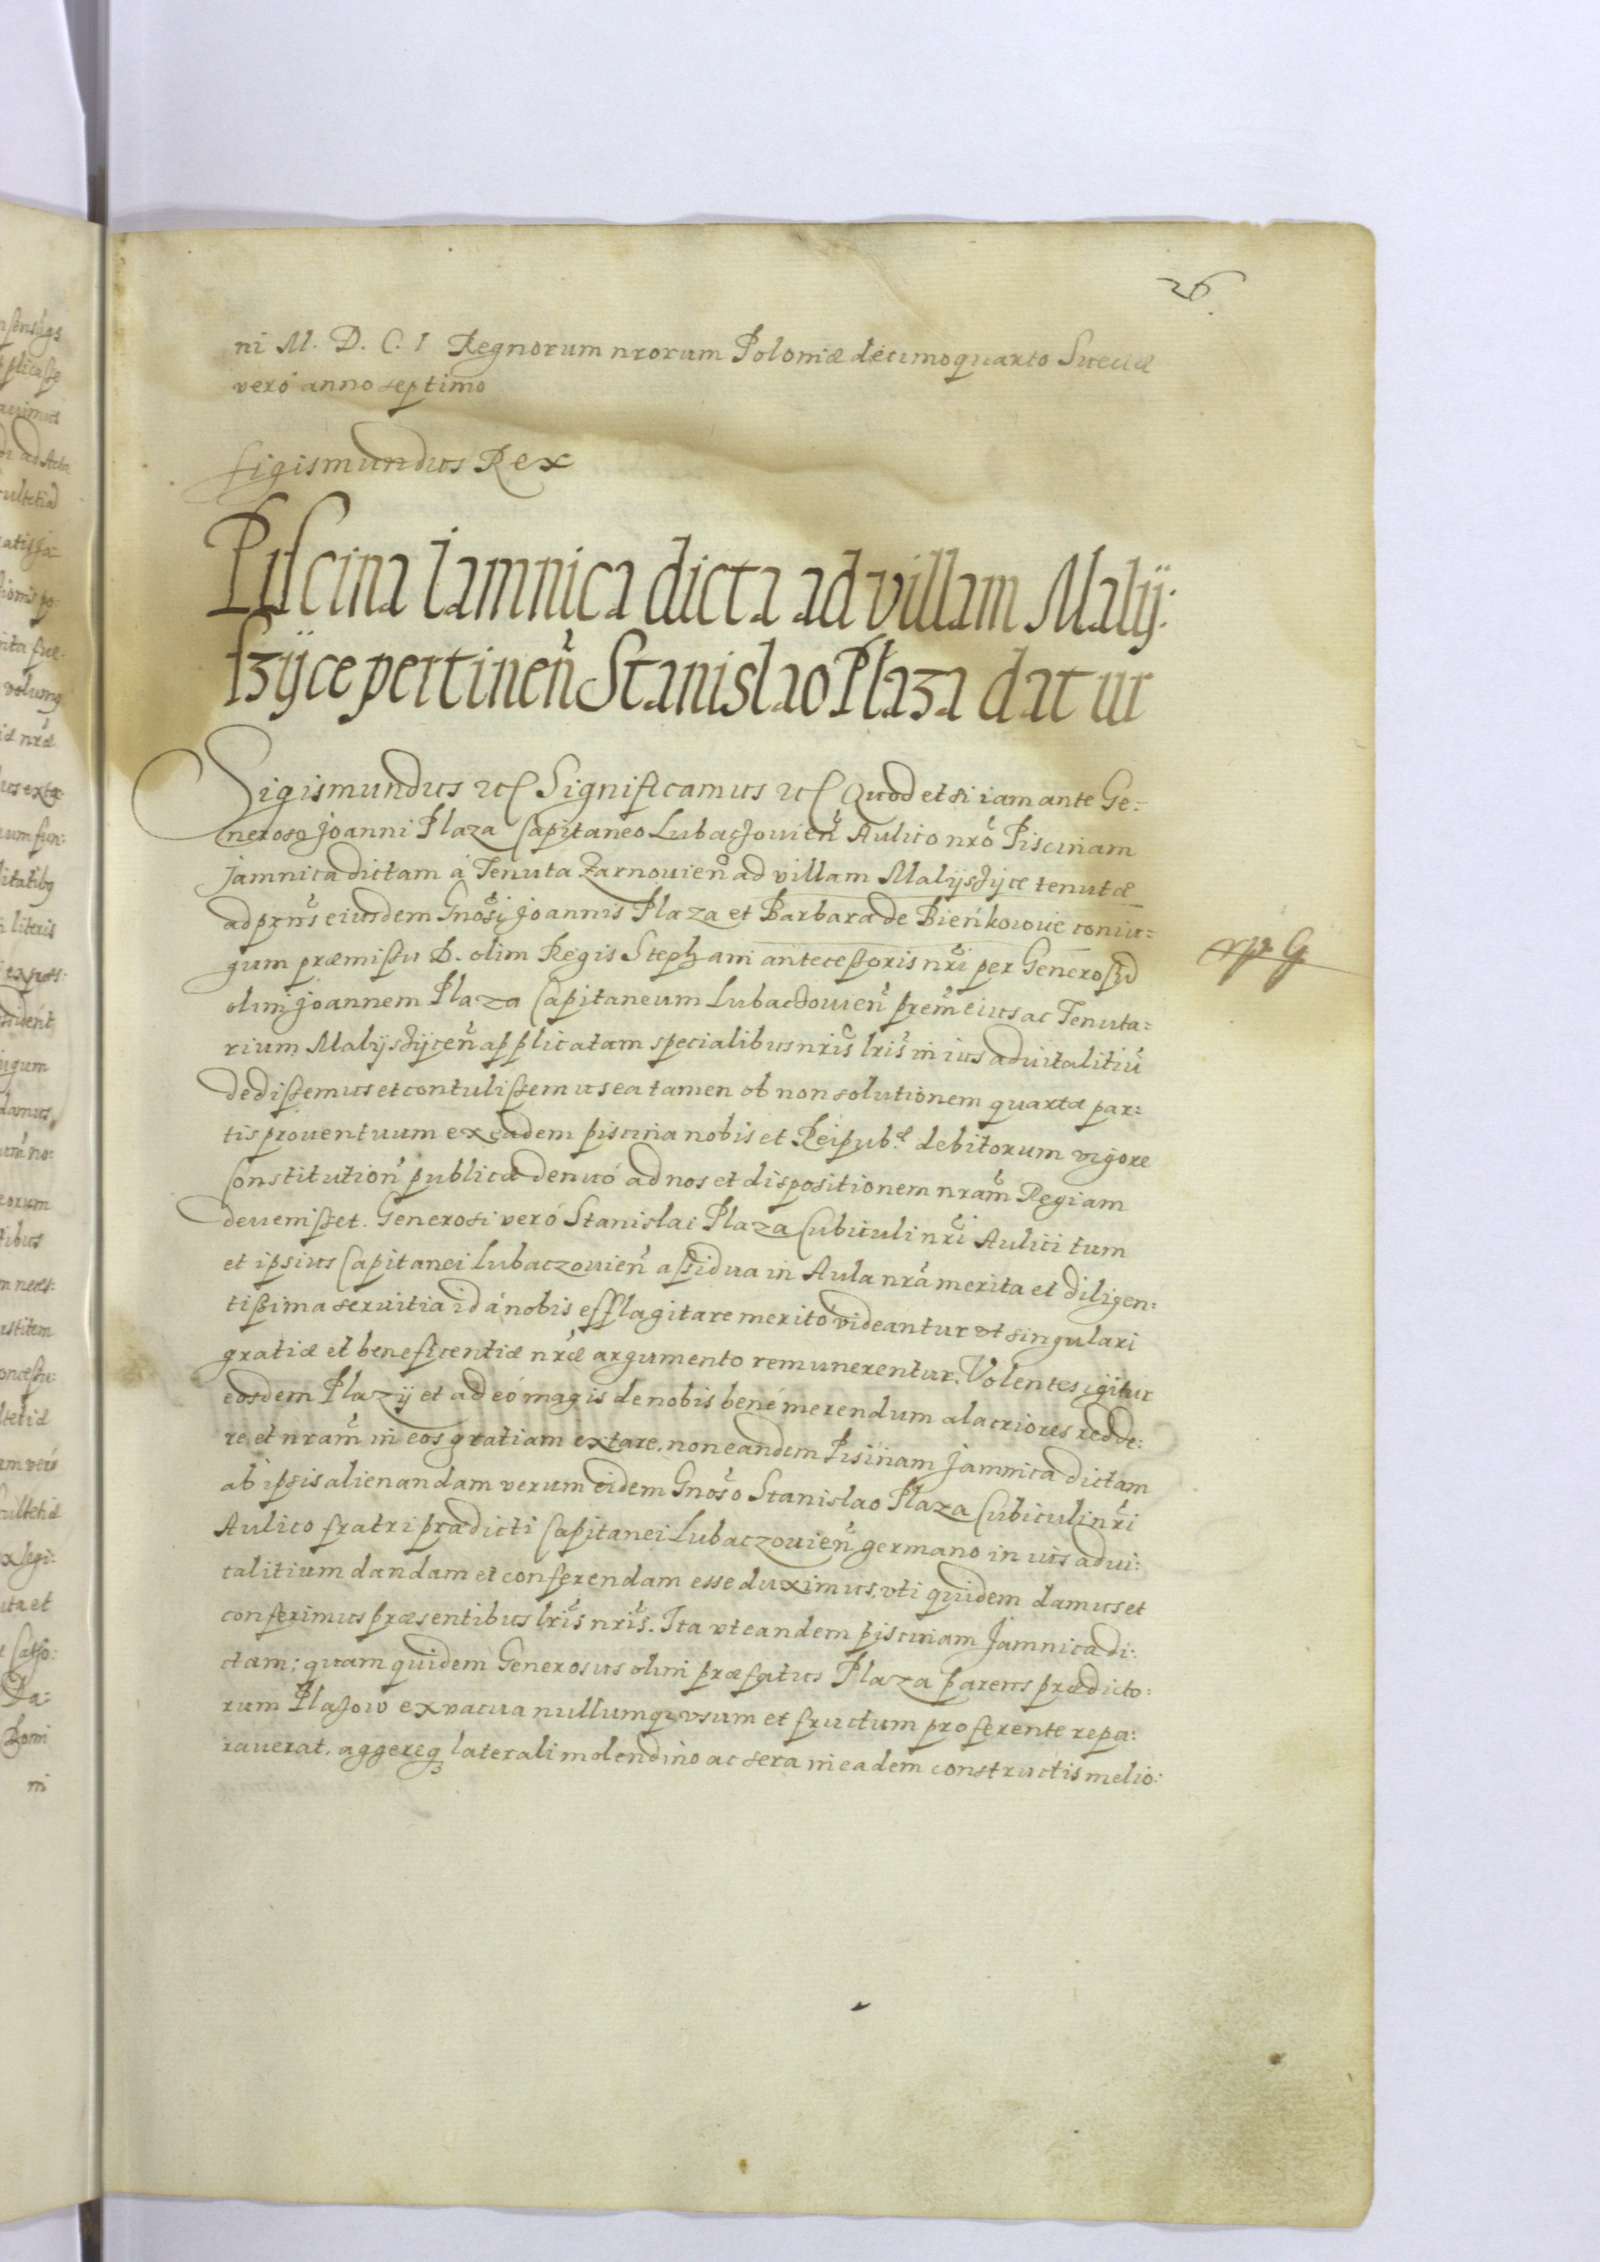 26
ni M. D. C. I Regnorum nrorum Poloniæ decimoquarto Sueciæ
veró anno septimo
Sigismundus Rex
Piscina Iamnica dicta ad villam Malÿ:
szÿce pertineñ Stanislao Płaza datur
Sigismundus etc Significamus etc Quod etsi iam ante Ge-
neroso Joanni Płaza Capitaneo Lubaczovieñ Aulico nro Piscinam
Jamnica dictam á Tenuta Zarnovieñ ad villam Malÿszÿce tenutæ
ad prñs eiusdem Gnosi Joannis Płaza et Barbara de Bieńkowic coniu-
gum præmissu D. olim Regis Stephani antecessoris nri per Generosũ
olim Joannem Płaza Capitaneum Lubaczovieñ prem eius ac Tenuta-
rium Malÿszÿceñ applicatam specialibus nris lris in ius advitalitiũ
dedissemus et contulissemus ea tamen ob non solutionem quartæ par-
tis proventuum ex eadem piscina nobis et Reipub. debitorum vigore
Constitution publicæ denuó ad nos et dispositionem nram Regiam
devenisset. Generosi veró Stanislai Płaza Cubiculi nri Aulici tum
et ipsius Capitanei Lubaczovieñ assidua in Aula nra merita et diligen-
tissima servitia id á nobis efflagitare meritó videantur vt singulari
gratiæ et beneficentiæ nræ argumento remunerentur. Volentes igitur
eosdem Plazÿ et ad eó magis de nobis bené merendum alacriores redde-
re et nram in eos gratiam extare, non eandem Pisinam Jamnica dictam
ab ipsis alienandam verum eidem Gnoso Stanislao Płaza Cubiculi nri
Aulico fratri prædicti Capitanei Lubaczovieñ germano in ius advi-
talitium dandam et conferendam esse duximus, vti quidem damus et
conferimus præsentibus lris nris. Ita vt eandem piscinam Jamnica di-
ctam; quam quidem Generosus olim præfatus Płaza parens prædicto-
rum Płazow ex vacua nullumq vsum et fructum proferente repa-
raverat, aggereq laterali molendino ac sera in eadem constructis melio-